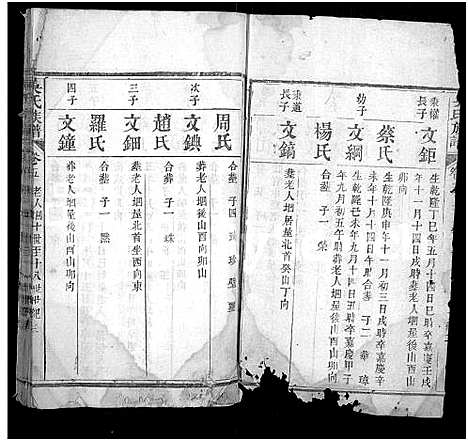 秉耀長子
文鉅
生乾隆丁巳年五月十四日巳時卒嘉慶壬戌
年十一月十四日戌時葬老人塅屋後山酉山
卯向
蔡氏
生乾隆庚申年十一月初三日戌時卒嘉慶辛
未年十月十四日午時合塟 子二 華 璋
幼子
文綱
生乾隆己未年九月十四日丑時卒嘉慶甲子
年九月初五年時葬老人塅屋後山酉山卯向
楊氏
合塟 子一 榮
秉道長子
文鎬
塟老人塅居屋北首癸山丁向
周氏
合塟 子四
次子
文鐭
葬老人塅後山酉向卯山
趙氏
合葬 子一 珠
三子
文鈿
塟老人塅屋北首坐西向東
羅氏
合塟 子一
四子
文鐘
葬老人塅屋後山酉山卯向
吳氏族譜 卷五 老人塅十世至十八世世紀